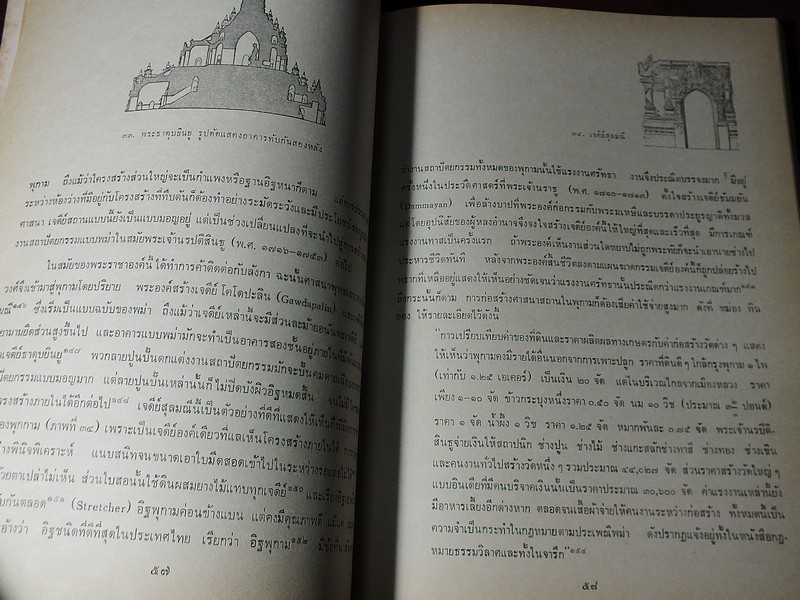 ๓๓. พระธาตุบยินยู รูปตัดแสดงอาคารทับกันสองหลัง
พุกาม ถึงแม้ว่าโครงสร้างส่วนใหญ่จะเป็นกำแพงหรือฐานอิฐหนาก็ตาม แต่การประกอบ
ระหว่างห้องว่างที่มีอยู่กับโครงสร้างที่ทึบตันก็ต้องทำอย่างระมัดระวังและมีประโยชน์
ศาสนา เจดีย์สถานแบบนี้ยังเป็นแบบมอญอยู่ แต่เป็นช่วงเปลี่ยนแปลงที่จะนำไปสู่
งานสถาปัตยกรรมแบบพม่าในสมัยพระเจ้านรปติสินธู (พ.ศ. ๑๗๑๖-๑๗๕๓) ต่อไป
ในสมัยของพระราชาองค์นี้ ได้ทำการค้าติดต่อกับลังกา ฉะนั้นศาสนาพุทธ
วงศ์จึงเข้ามาสู่พุกามโดยปริยาย พระองค์สร้างเจดีย์ โคโดปะลิน (Gawdapalin) และ
มณี๑๔๖ ซึ่งเริ่มเป็นแบบฉบับของพม่า ถึงแม้ว่าเจดีย์เหล่านี้จะมีส่วนละม้ายอนันทเจดีย์
ยามามยืดส่วนสูงขึ้นไป และอาคารแบบพม่ามักจะทำเป็นอาคารสองชั้นอยู่ภายใน
เจดีย์ธาตุบยินยู๑๔๗ พวกลายปูนปั้นตกแต่งงานสถาปัตยกรรมมักจะปั้นคมคาย
ปัตยกรรมแบบมอญมาก แต่ลายปูนปั้นเหล่านั้นก็ไม่ปิดบังผิวอิฐหมดสิ้น จนไม่
ครงสร้างภายในได้อีกต่อไป๑๔๘ เจดีย์สุลมณีนี้เป็นตัวอย่างที่ดีที่แสดงให้เห็นถึง
องพุกาม (ภาพที่ ๓๔) เพราะเป็นเจดีย์องค์เดียวที่แลเห็นโครงสร้างภายในได้
างพินิจพิเคราะห์ แนบสนิทจนขนาดเอาใบมีดสอดเข้าไปในระหว่างรอย
วยตาเปล่าไม่เห็น ส่วนใบสอนั้นใช้ดินผสมยางไม้แทบทุกเจดีย์๑๕๐ และเรียงอิฐ
บกันตลอด๑๕๑ (Stretcher) อิฐพุกามค่อนข้างแบน แต่คงมีคุณภาพดี แม้แต่
อ้างว่า อิฐชนิดที่ดีที่สุดในประเทศไทย เรียกว่า อิฐพุกาม๑๕๒ มีข้อที่น่า
๕๗
๓๔. เจดีย์สุลมณี
ว่างานสถาปัตยกรรมทั้งหมดของพุกามนั้นใช้แรงงานศรัทธา งานจึงประณีตบรรจงมาก มีอยู่
ครั้งหนึ่งในประวัติศาสตร์ที่พระเจ้านราธู (พ.ศ. ๑๗๑๐-๑๗๑๓) ตั้งใจสร้างเจดีย์ธัมมยัน
(Dammayan) เพื่อล้างบาปที่พระองค์ก่อกรรมกับพระมเหษีและบรรดาประยูรญาติทั้งมวล
แต่โดยอุปนิสัยของผู้หลงอำนาจจึงจงใจสร้างเจดีย์องค์นี้ให้ใหญ่ที่สุดและเร็วที่สุด มีการเกณฑ์
แรงงานทาสเป็นครั้งแรก ถ้าพระองค์เห็นงานส่วนใดหยาบไม่ถูกพระทัยก็จะนำเอานายช่างไป
ประหารชีวิตทันที หลังจากพระองค์สิ้นชีวิตลงตามแผนฆาตกรรมเจดีย์องค์นี้ก็ถูกปล่อยร้างไป
ซากที่เหลืออยู่แสดงให้เห็นอย่างชัดเจนว่าแรงงานศรัทธานั้นประณีตกว่าแรงงานเกณฑ์มาก๑๕๓
ถึงกระนั้นก็ตาม การก่อสร้างศาสนาสถานในพุกามก็ต้องเสียค่าใช้จ่ายสูงมาก ดังที่ หม่อง ทิน
ออง ให้รายละเอียดไว้ดังนี้
“การเปรียบเทียบค่าของที่ดินและราคาผลิตผลทางเกษตรกับค่าก่อสร้างวัดต่าง ๆ แสดง
ให้เห็นว่าพุกามคงมีรายได้อื่นนอกจากการเพาะปลูก ราคาที่ดินดี ๆ ใกล้กรุงพุกาม ๑ ไพ
(เท่ากับ ๑.๒๕ เอเคอร์) เป็นเงิน ๒๐ จัด แต่ในบริเวณไกลจากเมืองหลวง ราคา
เพียง ๑-๑๐ จัด ข้าวกระบุงหนึ่งราคา ๐.๕๐ จัด นม ๑๐ วิช (ประมาณ ๓ ปอนด์)
ราคา ๑ จัด น้ำผึ้ง ๑ วิช ราคา ๑.๒๕ จัด หมากพันละ ๐.๗๕ จัด พระเจ้านรปิติ-
สินธูจ่ายเงินให้สถาปนิก ช่างปูน ช่างไม้ ช่างแกะสลักช่างทาสี ช่างทอง ช่างเงิน
และคนงานทั่วไปสร้างวัดหนึ่ง ๆ รวมประมาณ ๔๔,๐๒๗ จัด ส่วนราคาสร้างวัดใหญ่ๆ
แบบอินเดียที่มีคนบริจาคเงินนั้นเป็นราคาประมาณ ๓๐,๖๐๐ จัด ค่าแรงงานเหล่านี้ยัง
มีอาหารเลี้ยงอีกต่างหาก ตลอดจนเสื้อผ้าจ่ายให้คนงานระหว่างก่อสร้าง ทั้งหมดนี้เป็น
ความจำเป็นกระทำในกฎหมายตามประเพณีพม่า ดังปรากฏแจ้งอยู่ทั้งในหนังสือกฎ-
หมายธรรมวิลาศและทั้งในจารึก”๑๕๔
๕๘